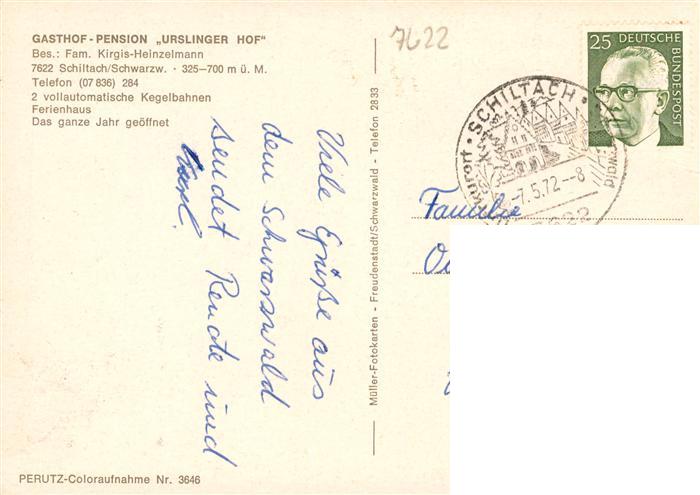 GASTHOF - PENSION „URSLINGER HOF"
Bes.: Fam. Kirgis-Heinzelmann
7622 Schiltach/Schwarzw. · 325—700 m ü. M.
Telefon (07 836) 284
2 vollautomatische Kegelbahnen
Ferienhaus
Das ganze Jahr geöffnet
7622
25 DEUTSCHE
BUNDESPOST
SCHILTACH
-7.5.72--8
Viele Grüße aus
dem Schwarzwald
sendet Renate und
Müller-Fotokarten - Freudenstadt/Schwarzwald - Telefon 2833
Familie
PERUTZ-Coloraufnahme Nr. 3646